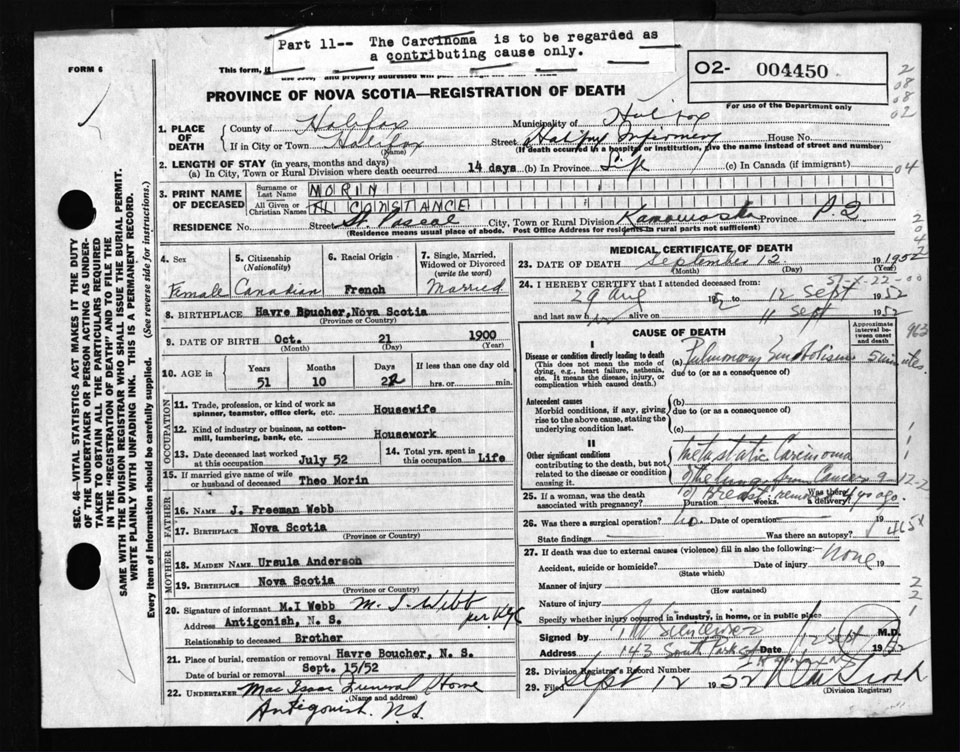 Part 11-- The Carcinoma is to be regarded as
a contributing cause only.
FORM 6
This form,
O2- 004450
PROVINCE OF NOVA SCOTIA—REGISTRATION OF DEATH
For use of the Department only
SEC. 46—VITAL STATISTICS ACT MAKES IT THE DUTY
OF THE UNDERTAKER OR PERSON ACTING AS UNDER-
TAKER TO OBTAIN ALL THE PARTICULARS REQUIRED
IN THE "REGISTRATION OF DEATH" AND TO FILE THE
SAME WITH THE DIVISION REGISTRAR WHO SHALL ISSUE THE BURIAL PERMIT.
WRITE PLAINLY WITH UNFADING INK. THIS IS A PERMANENT RECORD.
Every item of information should be carefully supplied. (See reverse side for instructions.)
1. PLACE OF DEATH
County of Halifax
Municipality of Halifax
If in City or Town Halifax (Name)
Street Halifax Infirmary House No.
(If death occurred in a hospital or institution, give the name instead of street and number)
2. LENGTH OF STAY (in years, months and days)
(a) In City, Town or Rural Division where death occurred 14 days (b) In Province Life (c) In Canada (if immigrant)
3. PRINT NAME OF DECEASED
Surname or Last Name MORIN
All Given or Christian Names CONSTANCE
RESIDENCE No. Street St. Pascal City, Town or Rural Division Kamouraska Province P.Q.
(Residence means usual place of abode. Post Office Address for residents in rural parts not sufficient)
4. Sex Female
5. Citizenship (Nationality) Canadian
6. Racial Origin French
7. Single, Married, Widowed or Divorced (write the word) Married
8. BIRTHPLACE Havre Boucher, Nova Scotia
(Province or Country)
9. DATE OF BIRTH Oct. 21 1900
(Month) (Day) (Year)
10. AGE in Years Months Days If less than one day old
51 10 22 hrs. or min.
OCCUPATION
11. Trade, profession, or kind of work as spinner, teamster, office clerk, etc. Housewife
12. Kind of industry or business, as cotton-mill, lumbering, bank, etc. Housework
13. Date deceased last worked at this occupation July 52
14. Total yrs. spent in this occupation Life
15. If married give name of wife or husband of deceased Theo Morin
FATHER
16. NAME J. Freeman Webb
17. BIRTHPLACE Nova Scotia
(Province or Country)
MOTHER
18. MAIDEN NAME Ursula Anderson
19. BIRTHPLACE Nova Scotia
(Province or Country)
20. Signature of informant M.I Webb M. I. Webb
Address Antigonish, N. S.
Relationship to deceased Brother
21. Place of burial, cremation or removal Havre Boucher, N. S.
Date of burial or removal Sept. 15/52
22. UNDERTAKER Mac Isaac Funeral Home
(Name and address)
Antigonish. N.S.
MEDICAL CERTIFICATE OF DEATH
23. DATE OF DEATH September 12 1952
(Month) (Day) (Year)
24. I HEREBY CERTIFY that I attended deceased from:
29 Aug 1952 to 12 Sept 1952
and last saw h alive on 11 Sept 1952
CAUSE OF DEATH
Approximate interval between onset and death
I
Disease or condition directly leading to death
(This does not mean the mode of dying, e.g., heart failure, asthenia, etc. It means the disease, injury, or complication which caused death.)
(a) Pulmonary Embolism 5 minutes.
due to (or as a consequence of)
Antecedent causes
Morbid conditions, if any, giving rise to the above cause, stating the underlying condition last.
(b)
due to (or as a consequence of)
(c)
II
Other significant conditions
contributing to the death, but not related to the disease or condition causing it.
Metastatic Carcinoma
of the lungs from Cancer
of Breast
25. If a woman, was the death associated with pregnancy? Duration weeks. Was there a delivery?
26. Was there a surgical operation? no. Date of operation 19
State findings Was there an autopsy?
27. If death was due to external causes (violence) fill in also the following:
None
Accident, suicide or homicide? Date of injury 19
(State which)
Manner of injury
(How sustained)
Nature of injury
Specify whether injury occurred in industry, in home, or in public place
Signed by M.D.
Address 143 South Park St Date 12 Sept 1952
28. Division Registrar's Record Number
29. Filed Sept 12 1952
(Division Registrar)